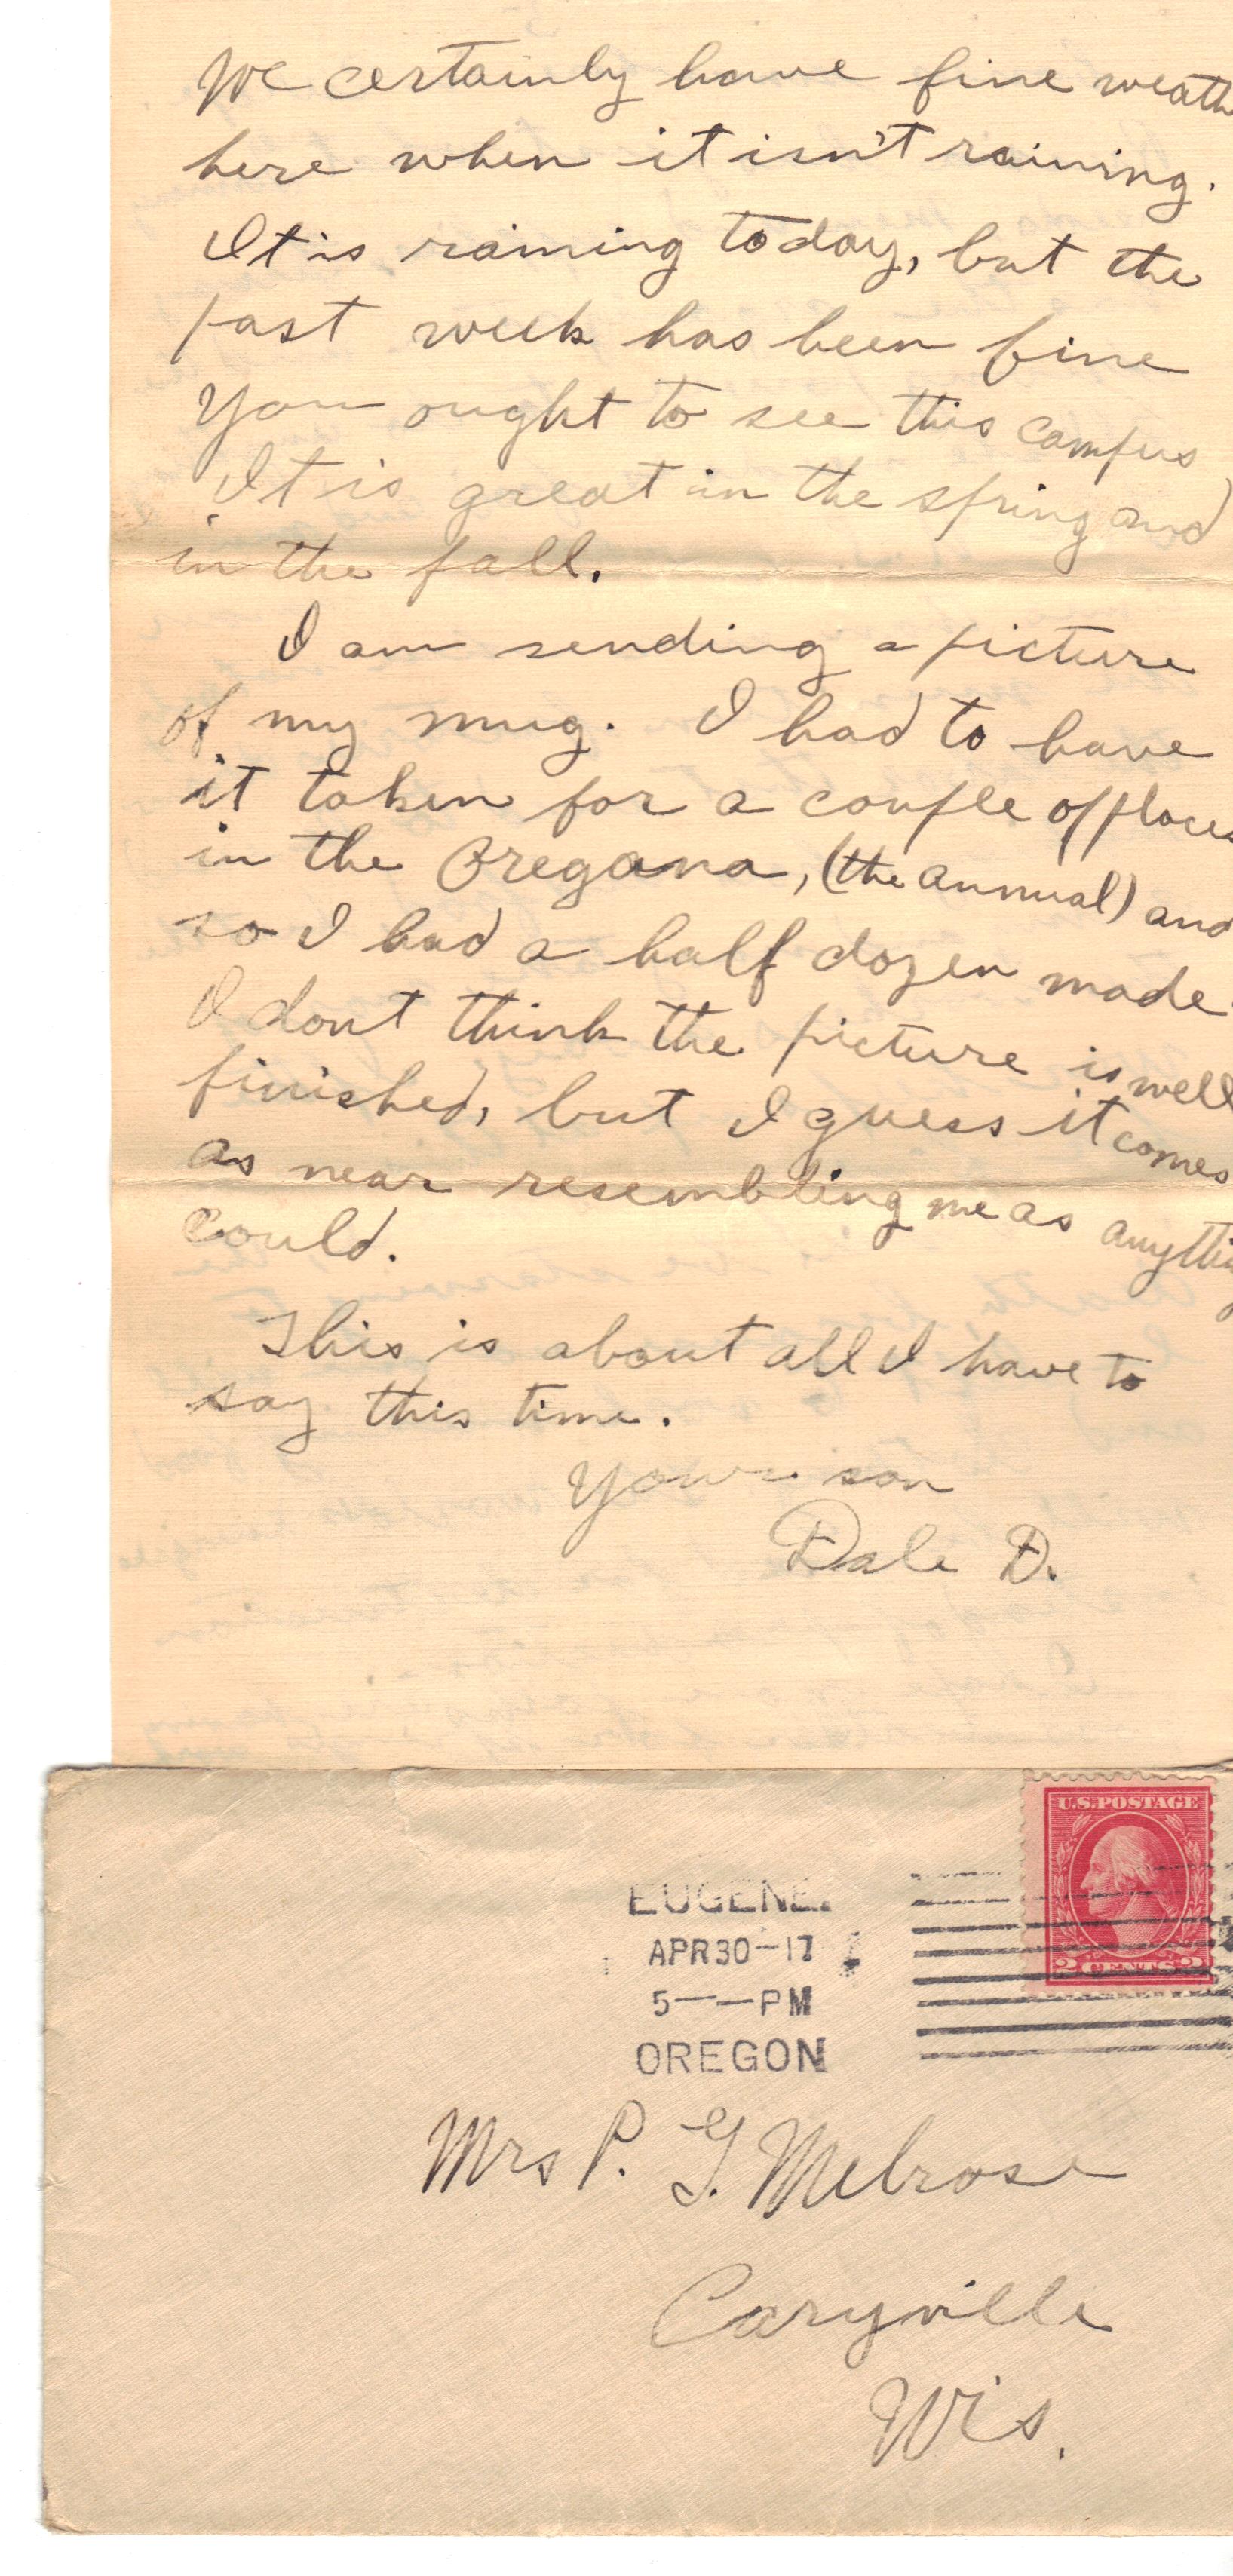 We certainly have fine weath
here when it isn't raining.
It is raining today, but the
past week has been fine
You ought to see this campus
It is great in the spring and
in the fall.
I am sending a picture
of my mug. I had to have
it taken for a couple of places
in the Oregana, (the annual) and
so I had a half dozen made.
I dont think the picture is well
finished, but I guess it comes
as near resembling me as anythin
could.
This is about all I have to
say this time.
Your son
Dale D.
U.S. POSTAGE
2 CENTS 2
EUGENE.
APR 30-17
5--PM
OREGON
Mrs P. G. Melrose
Caryville
Wis.